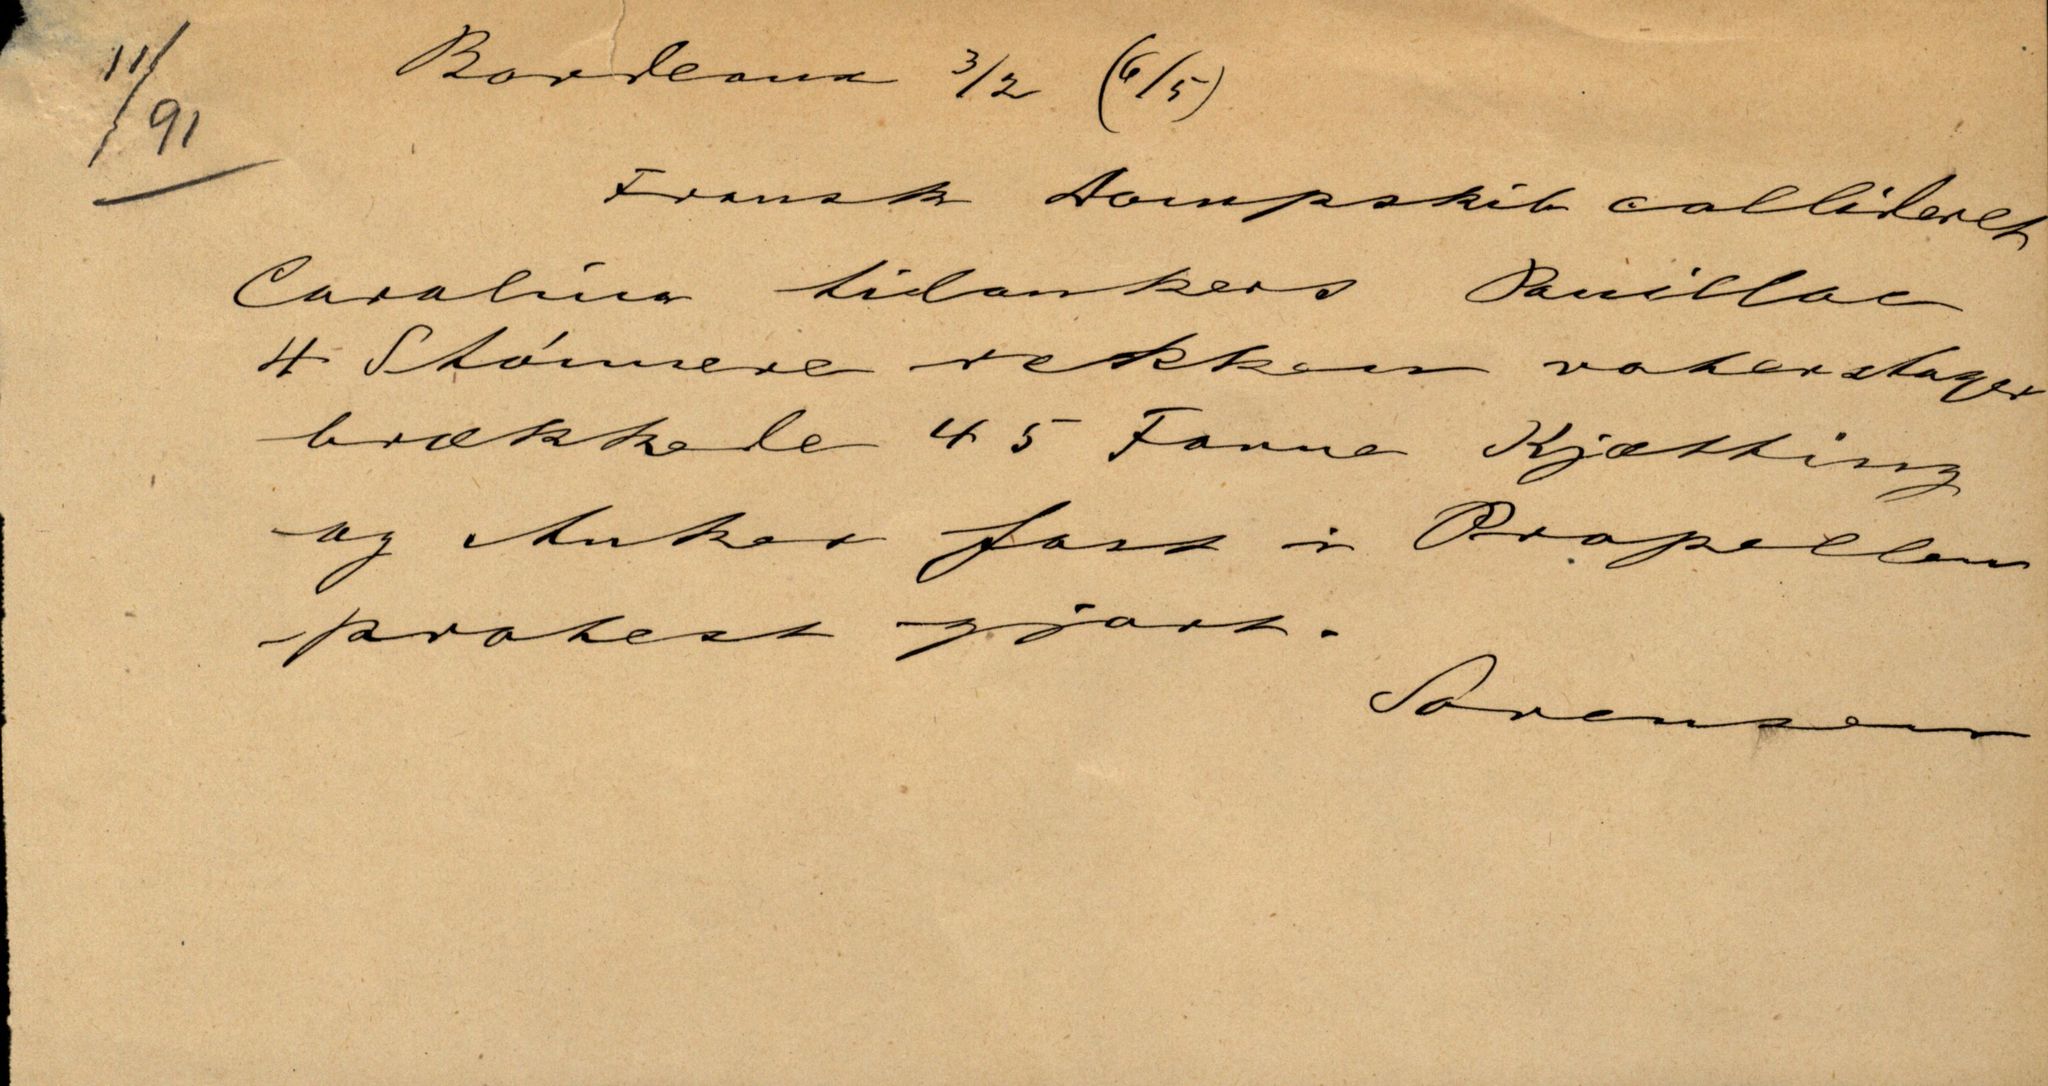 11/91
Bordeaux 3/2 (6/5)
Fransk Dampskib collideret
Carolina tilankers Pauillac
4 Stönnere rekken vaterstager
brækkede 45 Favne Kjætting
og Anker fast i Propellen
protest gjort.
Sorensen